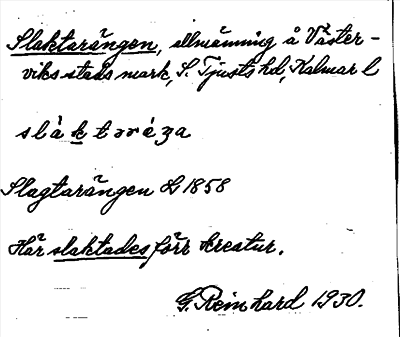 Slaktarängen, allmänning å Väster-
viks stads mark, S. Tjusts hd, Kalmar l
slàktaréṉa
Slagtarängen 1858
Här slaktades förr kreatur.
G. Reinhard 1930.